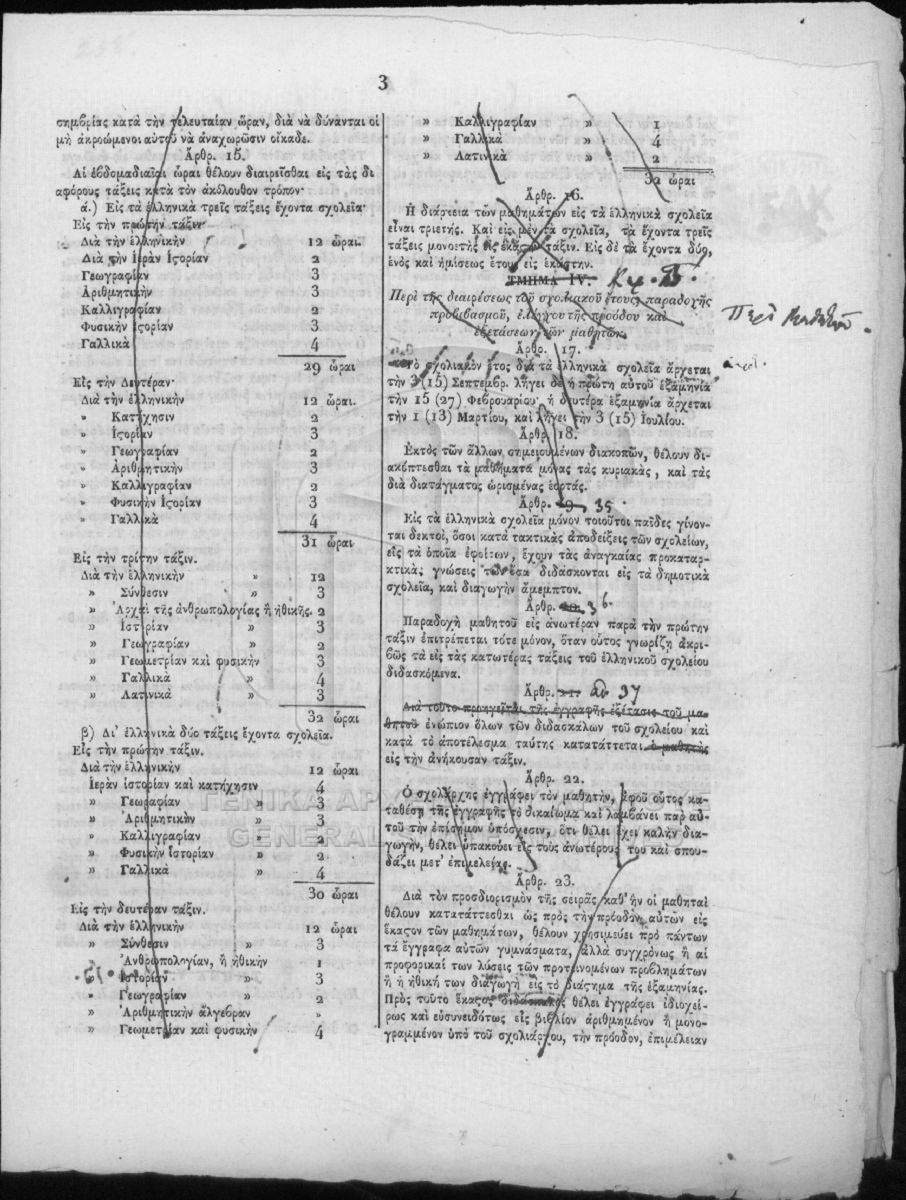 3
σημβρίας κατὰ τὴν τελευταίαν ὥραν, διὰ νὰ δύνανται οἱ
μὴ ἀκροώμενοι αὐτοῦ νὰ ἀναχωρῶσιν οἴκαδε.
Ἄρθρ. 15.
Αἱ ἑβδομαδιαῖαι ὧραι θέλουν διαιρεῖσθαι εἰς τὰς δι
αφόρους τάξεις κατὰ τὸν ἀκόλουθον τρόπον·
ά.) Εἰς τὰ ἑλληνικὰ τρεῖς τάξεις ἔχοντα σχολεῖα·
Εἰς τὴν πρώτην τάξιν·
Διὰ τὴν ἑλληνικὴν 12 ὧραι.
Διὰ τὴν Ἱερὰν Ἱςορίαν 2
Γεωγραφίαν 3
Ἀριθμητικὴν 3
Καλλιγραφίαν 2
Φυσικὴν ἱςορίαν 3
Γαλλικά 4
29 ὧραι
Εἰς τὴν Δευτέραν·
Διὰ τὴν ἑλληνικὴν 12 ὧραι.
» Κατήχησιν 2
» Ἱςορίαν 3
» Γεωγραφίαν 2
» Ἀριθμητικὴν 3
» Καλλιγραφίαν 2
» Φυσικὴν Ἱςορίαν 3
» Γαλλικά 4
31 ὧραι
Εἰς τὴν τρίτην τάξιν.
Διὰ τὴν ἑλληνικὴν » 12
» Σύνθεσιν » 3
» Ἀρχαὶ τῆς ἀνθρωπολογίας ἢ ἠθικῆς. 2
» Ἱστορίαν » 3
» Γεωγραφίαν » 2
» Γεωμετρίαν καὶ φυσικὴν 3
» Γαλλικὰ » 4
» Λατινικὰ » 3
32 ὧραι
β) Δι' ἑλληνικὰ δύο τάξεις ἔχοντα σχολεῖα.
Εἰς τὴν πρώτην τάξιν.
Διὰ τὴν ἑλληνικὴν 12 ὧραι
Ἱερὰν ἱστορίαν καὶ κατήχησιν 4
» Γεωγραφίαν » 3
» Ἀριθμητικὴν » 3
» Καλλιγραφίαν » 2
» Φυσικὴν ἱστορίαν » 2
» Γαλλικὰ » 4
30 ὧραι
Εἰς τὴν δευτέραν τάξιν.
Διὰ τὴν ἑλληνικὴν 12 ὧραι
» Σύνθεσιν » 3
Ἀνθρωπολογίαν, ἢ ἠθικὴν 1
» Ἱστορίαν » 3
» Γεωγραφίαν » 2
» Ἀριθμητικὴν ἄλγεβραν »
» Γεωμετρίαν καὶ φυσικὴν 4
» Καλλιγραφίαν » 1
» Γαλλικὰ » 4
» Λατινικὰ » 2
32 ὧραι
Ἄρθρ. 16.
Ἡ διάρκεια τῶν μαθημάτων εἰς τὰ ἑλληνικὰ σχολεῖα
εἶναι τριετής. Καὶ εἰς μὲν τὰ σχολεῖα, τὰ ἔχοντα τρεῖς
τάξεις μονοετὴς εἰς ἑκάστην τάξιν. Εἰς δὲ τὰ ἔχοντα δύο,
ἑνὸς καὶ ἡμίσεως ἔτους εἰς ἑκάστην.
ΤΜΗΜΑ IV. Κεφ. Β
Περὶ τῆς διαιρέσεως τοῦ σχολιακοῦ ἔτους, παραδοχῆς
προβιβασμοῦ, ἐλέγχου τῆς προόδου καὶ
ἐξετάσεων τῶν μαθητῶν.
Περὶ Μαθητῶν.
Ἄρθρ. 17.
σχολιακὸν ἔτος διὰ τὰ ἑλληνικὰ σχολεῖα ἄρχεται
τὴν 3 (15) Σεπτεμβρ. λήγει δὲ ἡ πρώτη αὐτοῦ ἑξαμηνία
τὴν 15 (27) Φεβρουαρίου· ἡ δευτέρα ἑξαμηνία ἄρχεται
τὴν 1 (13) Μαρτίου, καὶ λήγει τὴν 3 (15) Ἰουλίου.
Ἄρθρ. 18.
Ἐκτὸς τῶν ἄλλων σημειουμένων διακοπῶν, θέλουν δι-
ακόπτεσθαι τὰ μαθήματα μόνας τὰς κυριακὰς, καὶ τὰς
διὰ διατάγματος ὡρισμένας ἑορτάς.
Ἄρθρ. 19. 35.
Εἰς τὰ ἑλληνικὰ σχολεῖα μόνον τοιοῦτοι παῖδες γίνον-
ται δεκτοὶ, ὅσοι κατὰ τακτικὰς ἀποδείξεις τῶν σχολείων,
εἰς τὰ ὁποῖα ἐφοίτων, ἔχουν τὰς ἀναγκαίας προκαταρ-
κτικὰς γνώσεις τῶν ὅσα διδάσκονται εἰς τὰ δημοτικὰ
σχολεῖα, καὶ διαγωγὴν ἄμεμπτον.
Ἄρθρ. 20. 36.
Παραδοχὴ μαθητοῦ εἰς ἀνωτέραν παρὰ τὴν πρώτην
τάξιν ἐπιτρέπεται τότε μόνον, ὅταν οὗτος γνωρίζῃ ἀκρι-
βῶς τὰ εἰς τὰς κατωτέρας τάξεις τοῦ ἑλληνικοῦ σχολείου
διδασκόμενα.
Ἄρθρ. 21. 37
Διὰ τοῦτο προηγεῖται τῆς ἐγγραφῆς ἐξέτασις τοῦ μα-
θητοῦ ἐνώπιον ὅλων τῶν διδασκάλων τοῦ σχολείου καὶ
κατὰ τὸ ἀποτέλεσμα ταύτης κατατάττεται ὁ μαθητὴς
εἰς τὴν ἀνήκουσαν τάξιν.
Ἄρθρ. 22.
Ὁ σχολάρχης ἐγγράφει τὸν μαθητὴν, ἀφοῦ οὗτος κα-
ταθέσῃ τῆς ἐγγραφῆς τὸ δικαίωμα καὶ λαμβάνει παρ αὐ-
τοῦ τὴν ἐπίσημον ὑπόσχεσιν, ὅτι θέλει ἔχει καλὴν δια-
γωγὴν, θέλει ὑπακούει εἰς τοὺς ἀνωτέρους του καὶ σπου-
δάζει μετ' ἐπιμελείας.
Ἄρθρ. 23.
Διὰ τὸν προσδιορισμὸν τῆς σειρᾶς καθ' ἣν οἱ μαθηταὶ
θέλουν κατατάττεσθαι ὡς πρὸς τὴν πρόοδον αὐτῶν εἰς
ἕκαςον τῶν μαθημάτων, θέλουν χρησιμεύει πρὸ πάντων
τὰ ἔγγραφα αὐτῶν γυμνάσματα, ἀλλὰ συγχρόνως ἢ αἱ
προφορικαί των λύσεις τῶν προτεινομένων προβλημάτων
ἢ ἡ ἠθική των διαγωγὴ εἰς τὸ διάςημα τῆς ἑξαμηνίας.
Πρὸς τοῦτο ἕκαςος διδάσκαλος θέλει ἐγγράφει ἰδιοχεί-
ρως καὶ εὐσυνειδότως εἰς βιβλίον ἀριθμημένον ἢ μονο-
γραμμένον ὑπὸ τοῦ σχολιάρχου, τὴν πρόοδον, ἐπιμέλειαν